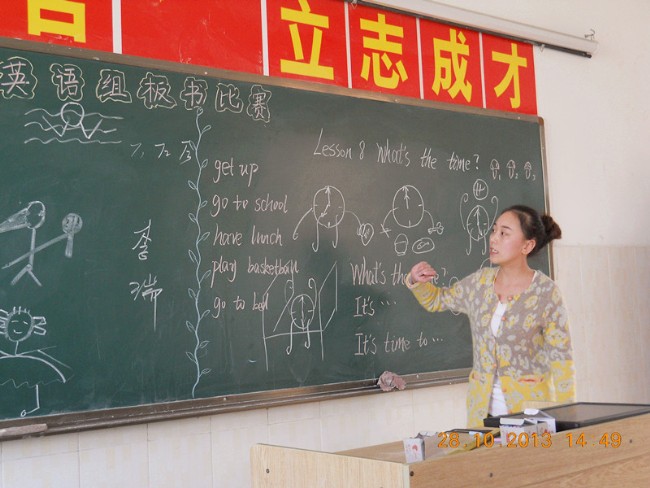 立志成才
英语组板书比赛
Lesson 8 What's the time?
get up
go to school
have lunch
play basketball
go to bed
李
瑞
What's the
It's ...
It's time to ...
28.10.2013 14:49